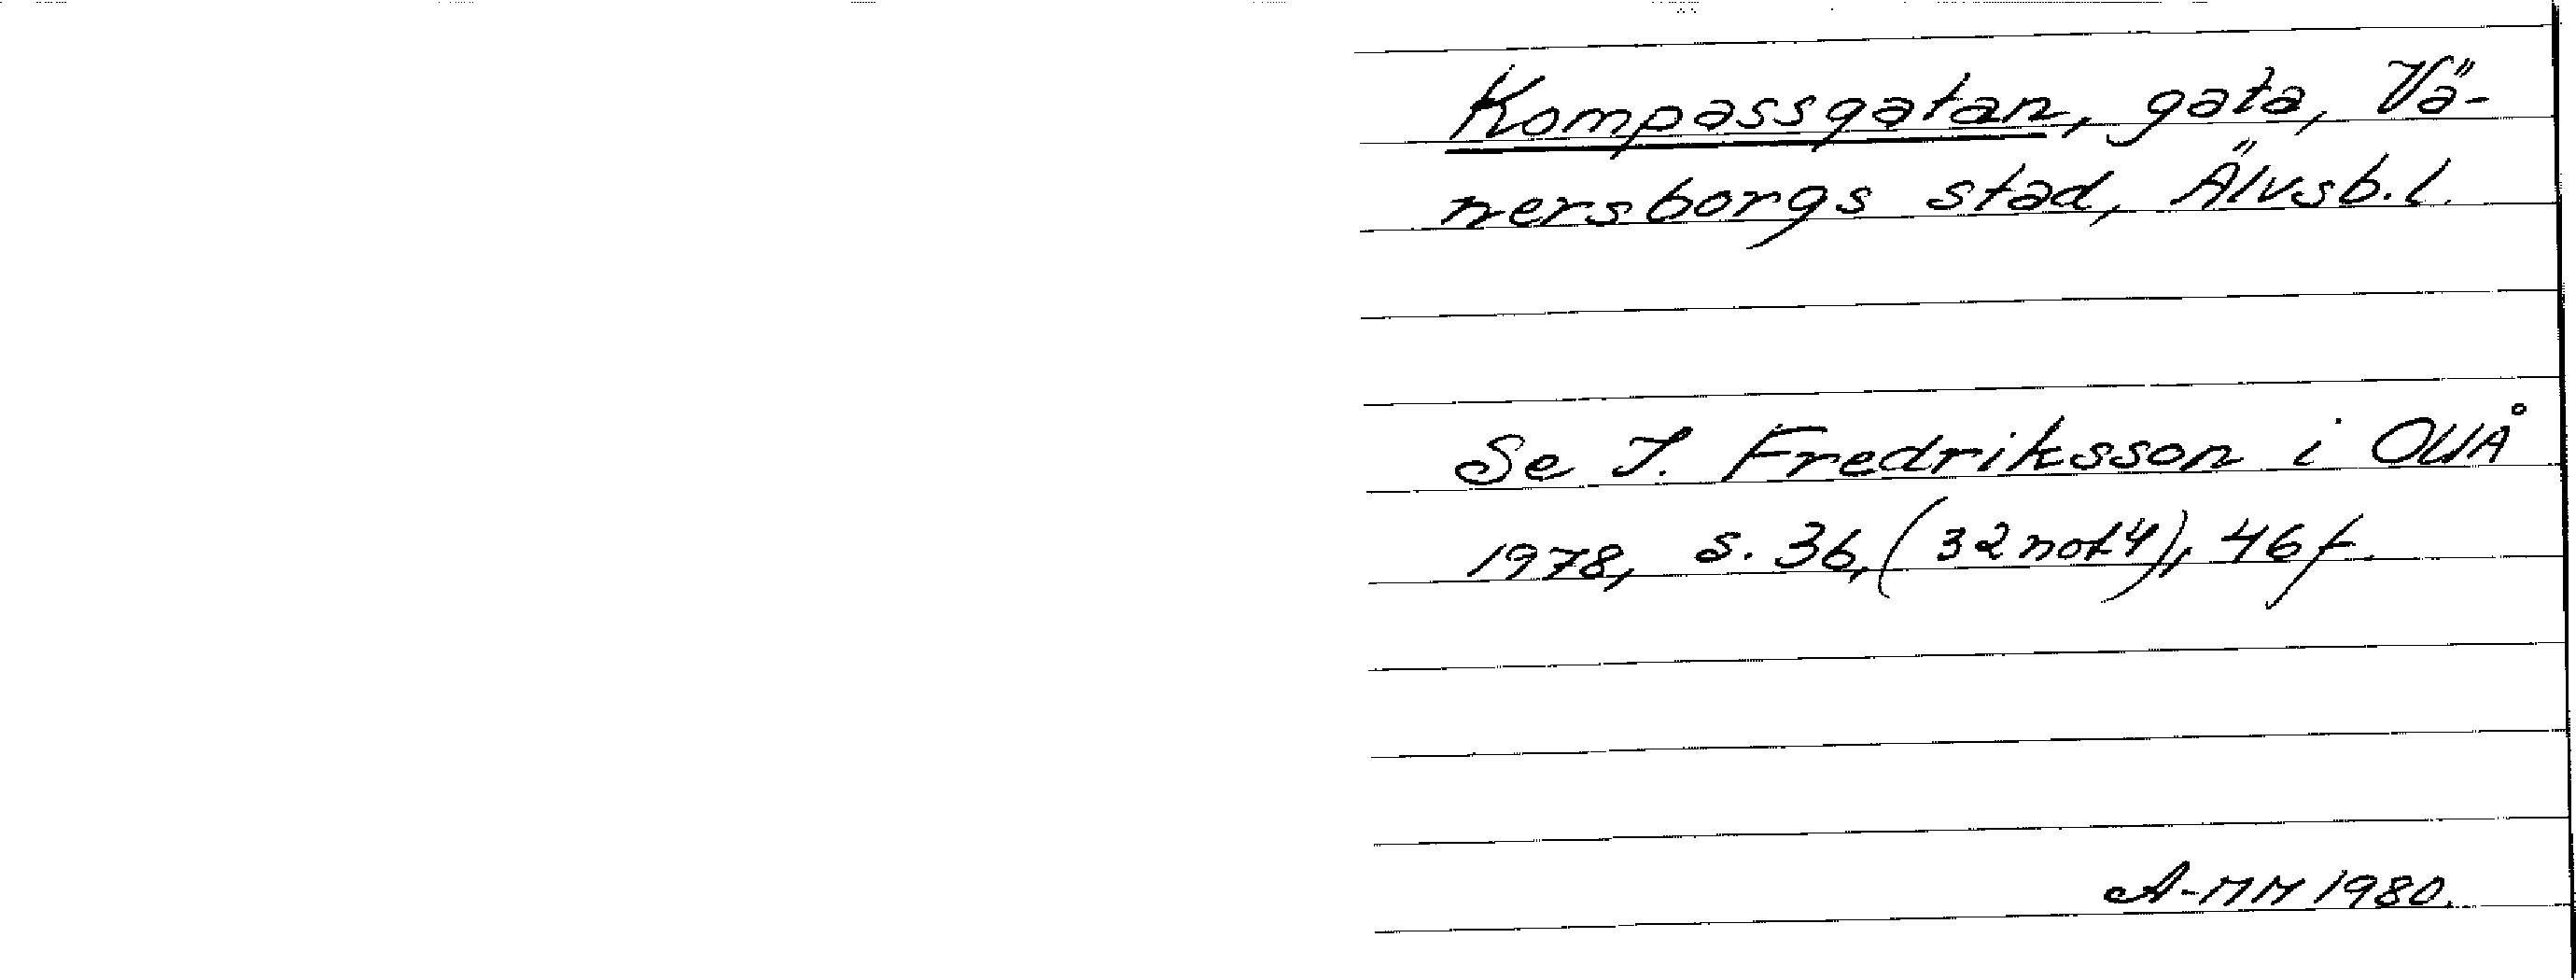 Kompassgatan, gata, Vä-
nersborgs stad, Älvsb.l.
Se I. Fredriksson i OUÅ
1978, s. 36, (32 not 4), 46 f.
A-MM 1980.